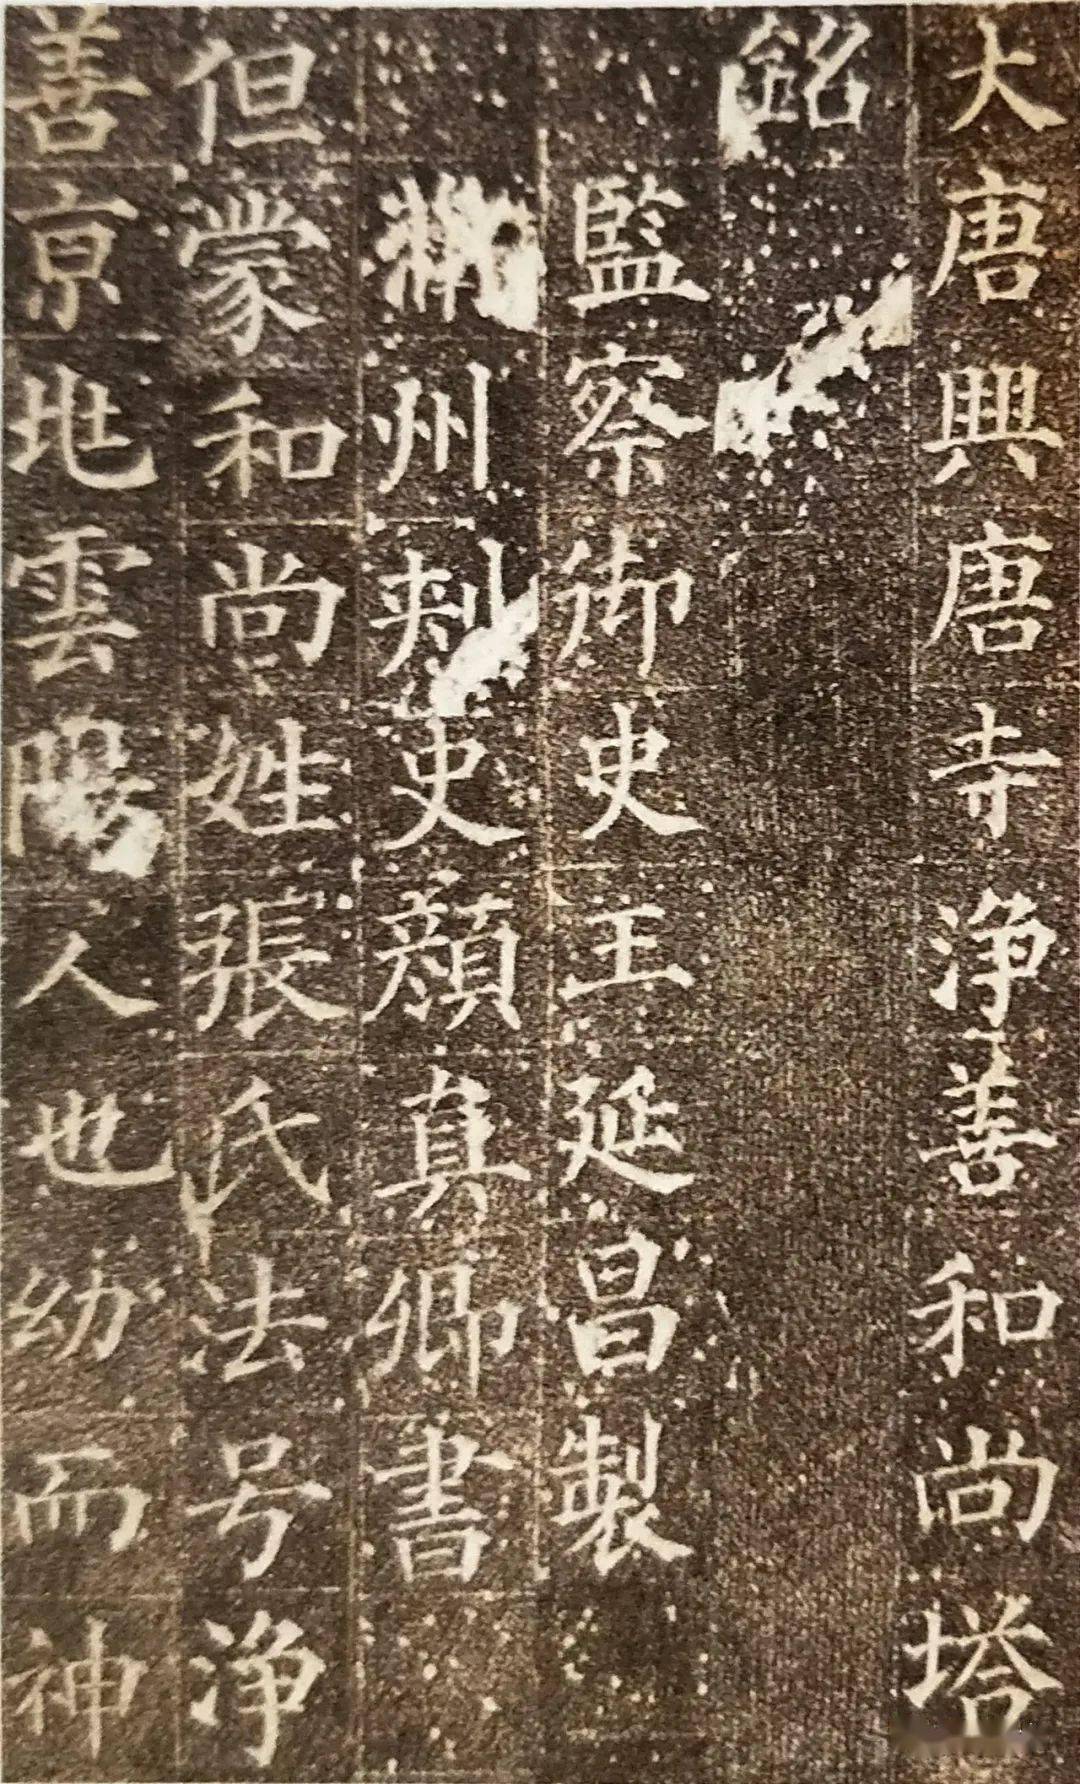 大唐興唐寺浄善和尚塔
銘
監察御史王延昌製
州刾史顏真卿書
但蒙和尚姓張氏法号浄
善京地雲陽人也幼而神